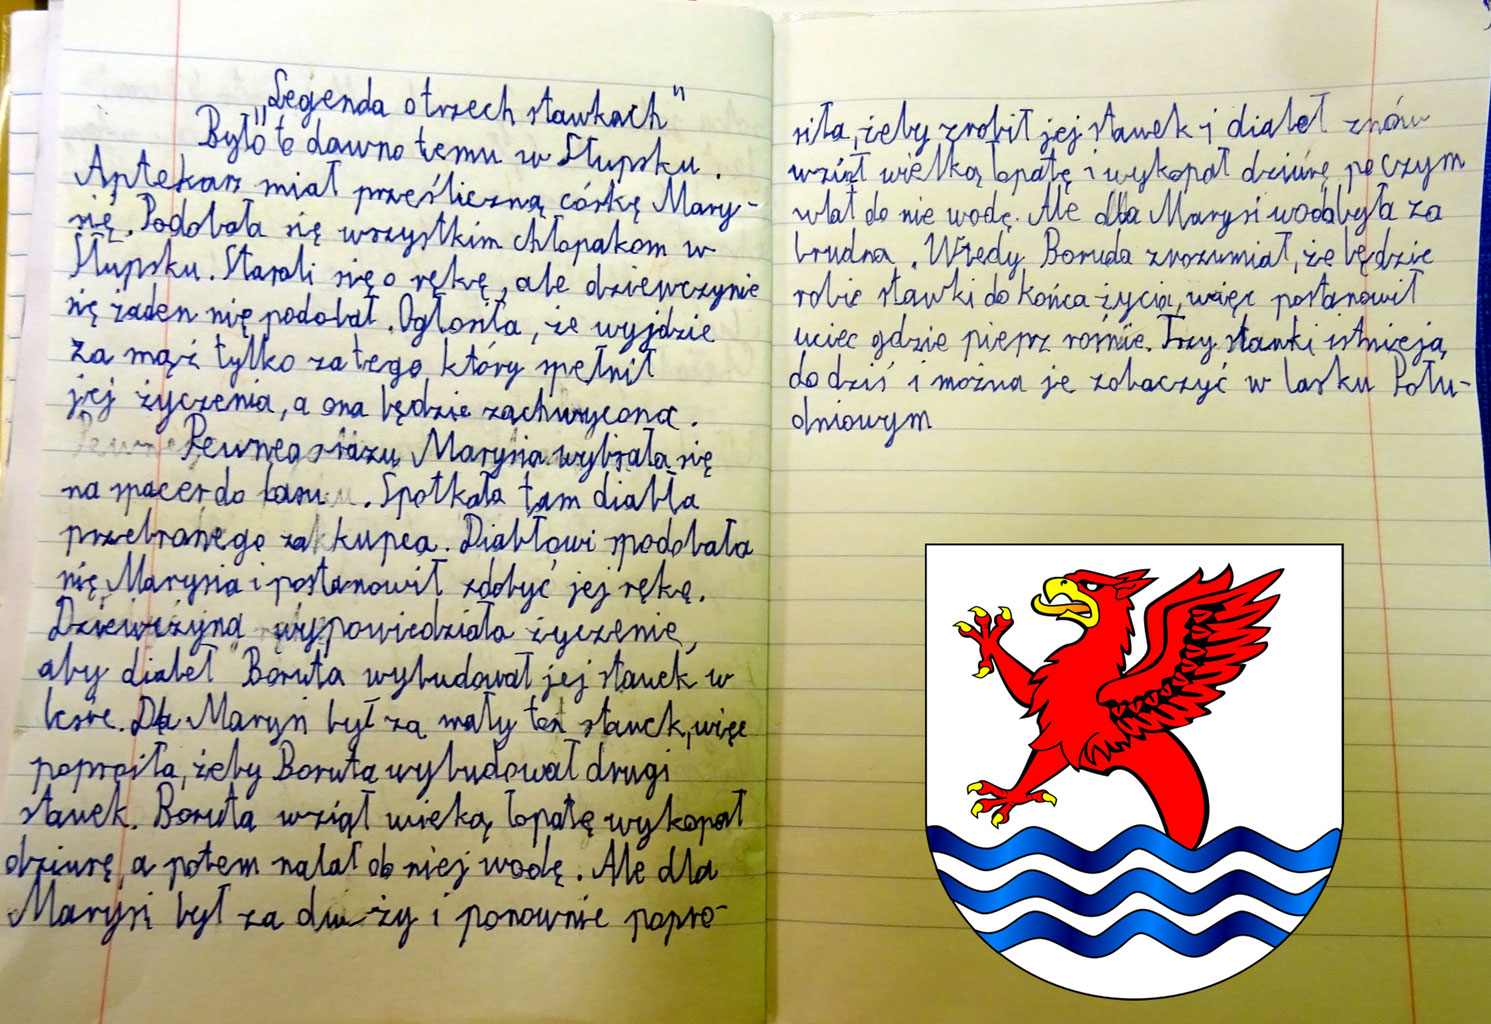 "Legenda o trzech stawkach"
Było to dawno temu w Słupsku.
Aptekarz miał prześliczną córkę Mary-
się. Podobała się wszystkim chłopakom w
Słupsku. Starali się o rękę, ale dziewczynie
się żaden nię podobał. Ogłosiła, że wyjdzie
za mąż tylko za tego który spełnił
jej życzenia, a ona będzie zachwycona.
Pewnego razu Marysia wybrała się
na spacer do lasu. Spotkała tam diabła
przebranego za kupca. Diabłowi spodobała
się Marysia i postanowił zdobyć jej rękę.
Dziewczyna wypowiedziała życzenie,
aby diabeł Boruta wybudował jej stawek w
lesie. Dla Marysi był za mały ten stawek, więc
poprosiła, żeby Boruta wybudował drugi
stawek. Boruta wziął wieką łopatę wykopał
dziurę, a potem nalał do niej wodę. Ale dla
Marysi był za duży i ponownie popro-
siła, żeby zrobił jej stawek i diabeł znów
wziął wielką łopatę i wykopał dziurę po czym
wlał do nie wodę. Ale dla Marysi woda była za
brudna. Wtedy Boruda zrozumiał, że będzie
robić stawki do końca życia, więc postanowił
uciec gdzie pieprz rośnie. Trzy stawki istnieją
do dziś i można je zobaczyć w lasku Połu-
dniowym